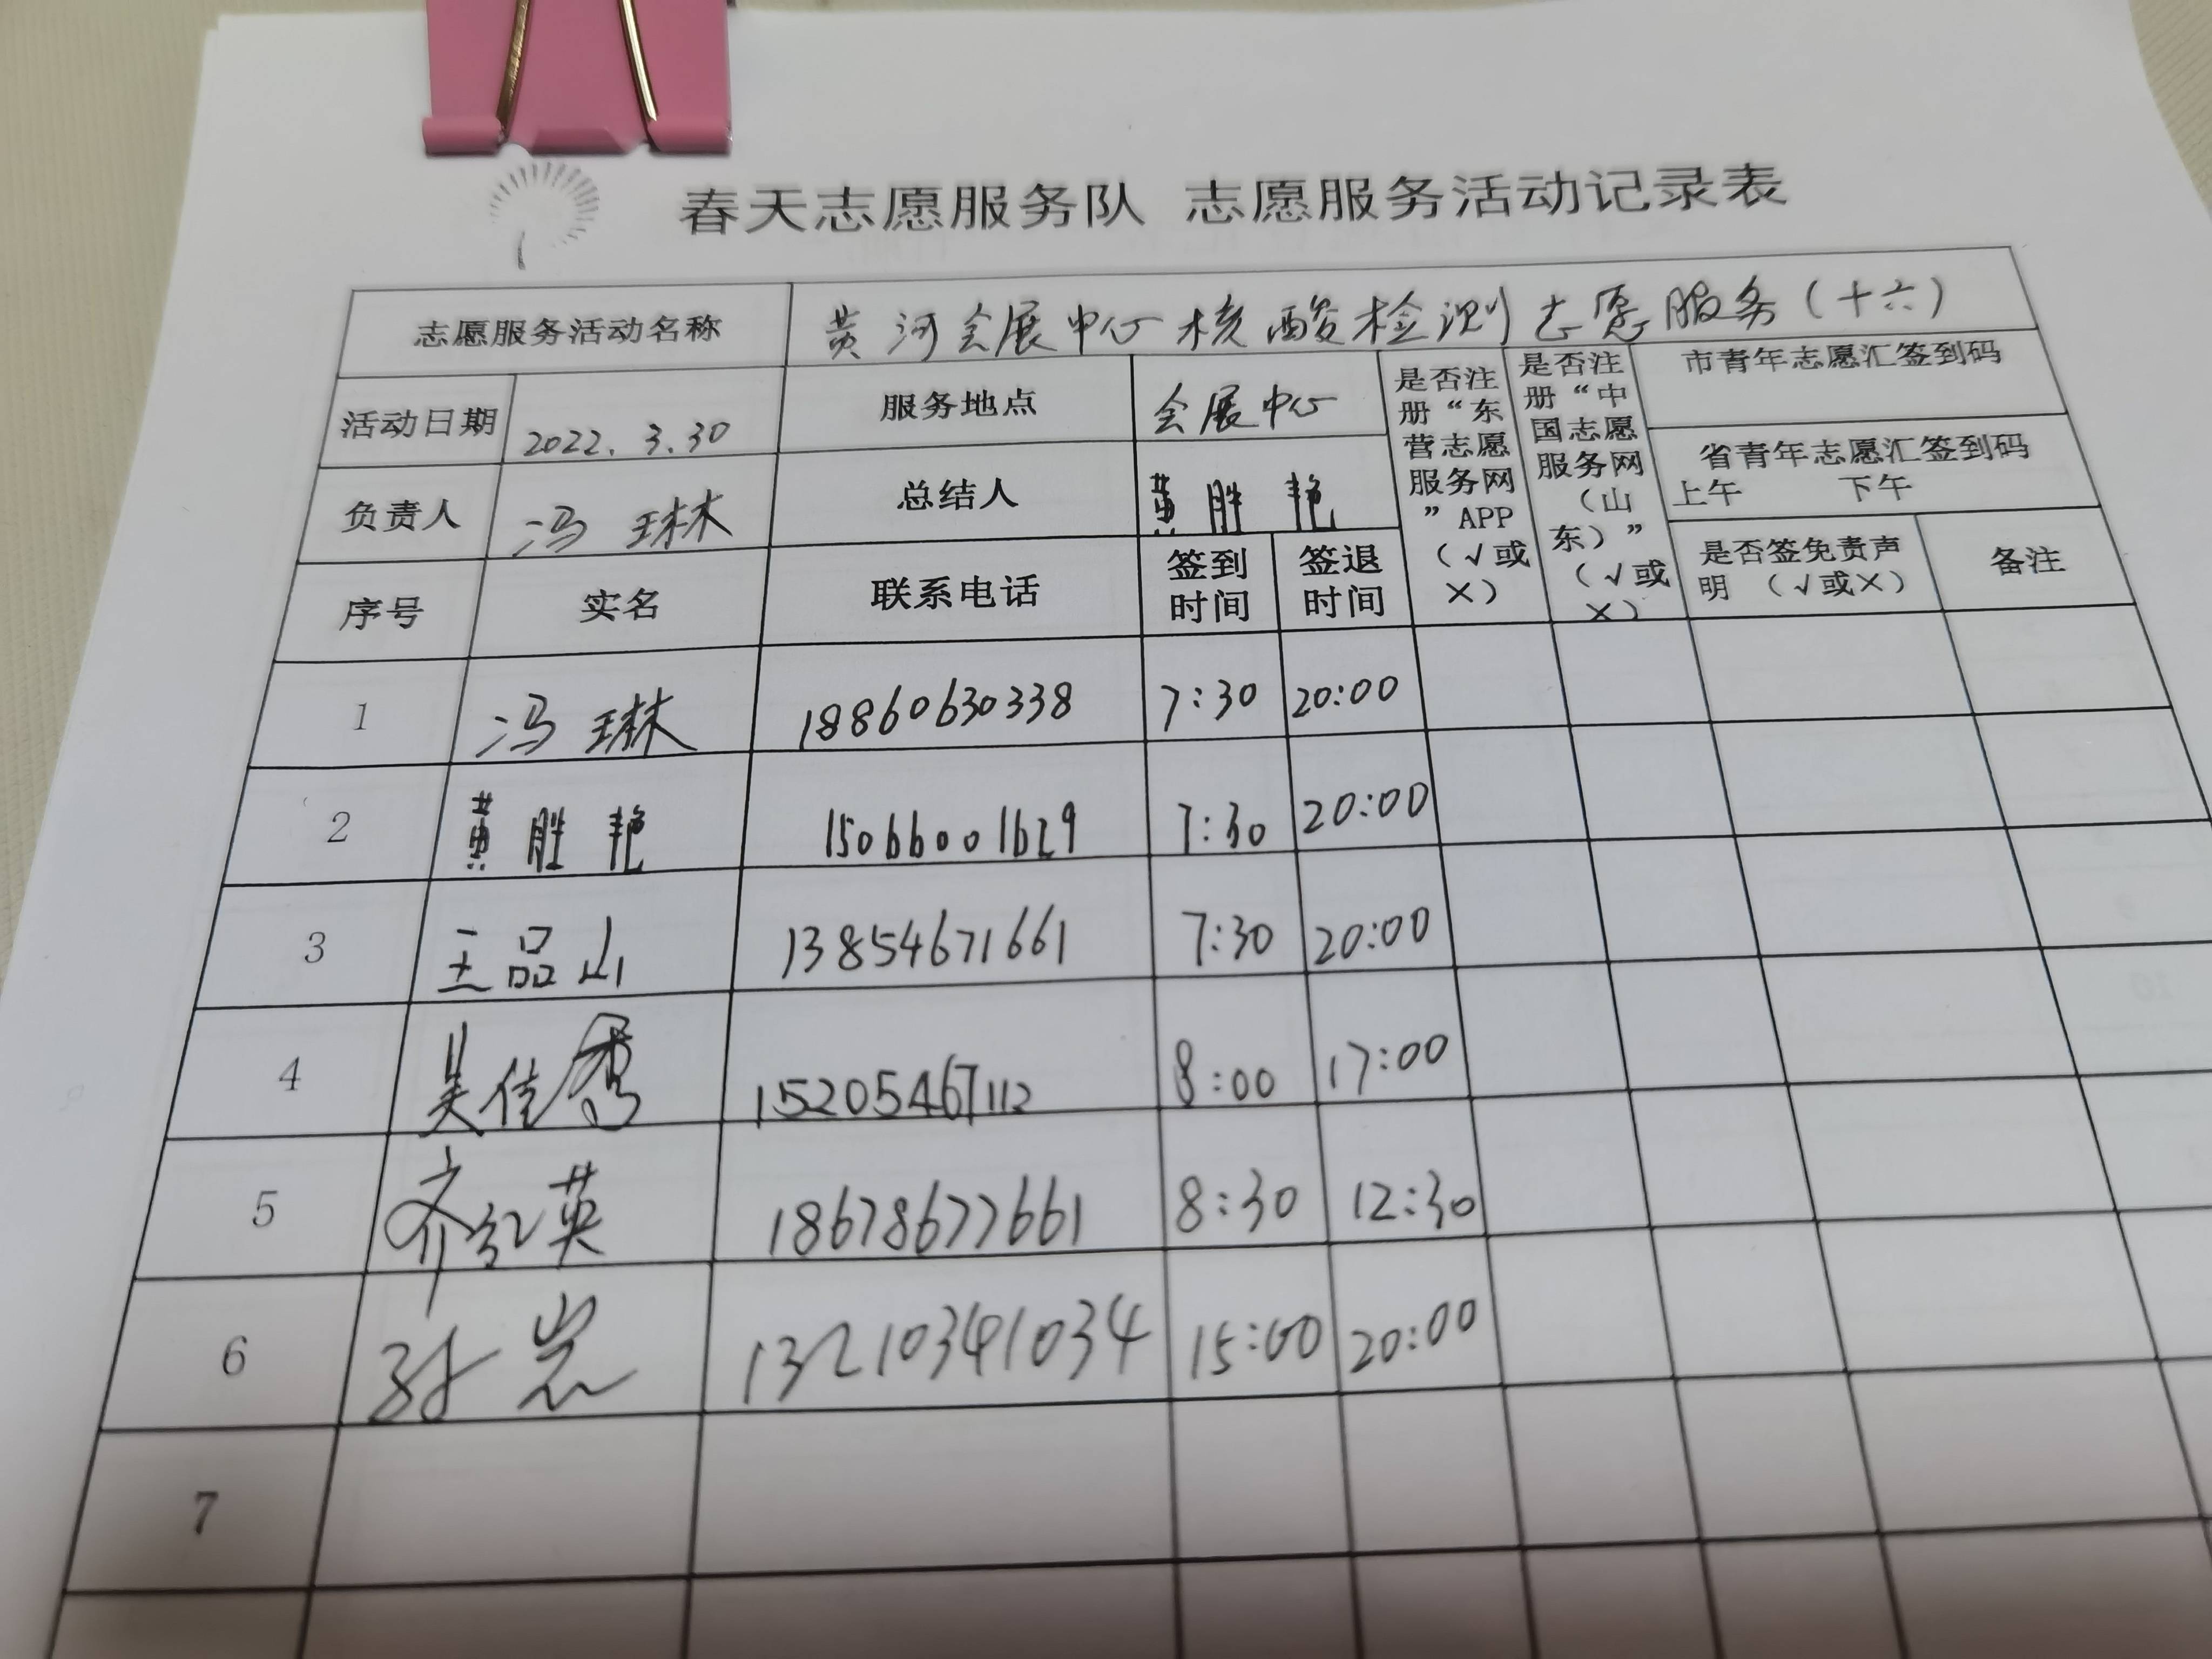 春天志愿服务队 志愿服务活动记录表
志愿服务活动名称 黄河会展中心核酸检测志愿服务(十六)
活动日期 2022.3.30 服务地点 会展中心
负责人 冯琳 总结人 黄胜艳
是否注册“东营志愿服务网”APP(√或×)
是否注册“中国志愿服务网(山东)”(√或×)
市青年志愿汇签到码
省青年志愿汇签到码
上午 下午
序号 实名 联系电话 签到时间 签退时间 是否签免责声明 (√或×) 备注
1 冯琳 18860630338 7:30 20:00
2 黄胜艳 15066001629 7:30 20:00
3 王品山 13854671661 7:30 20:00
4 吴佳秀 15205467112 8:00 17:00
5 齐红英 18678677661 8:30 12:30
6 孙岩 13210341034 15:00 20:00
7